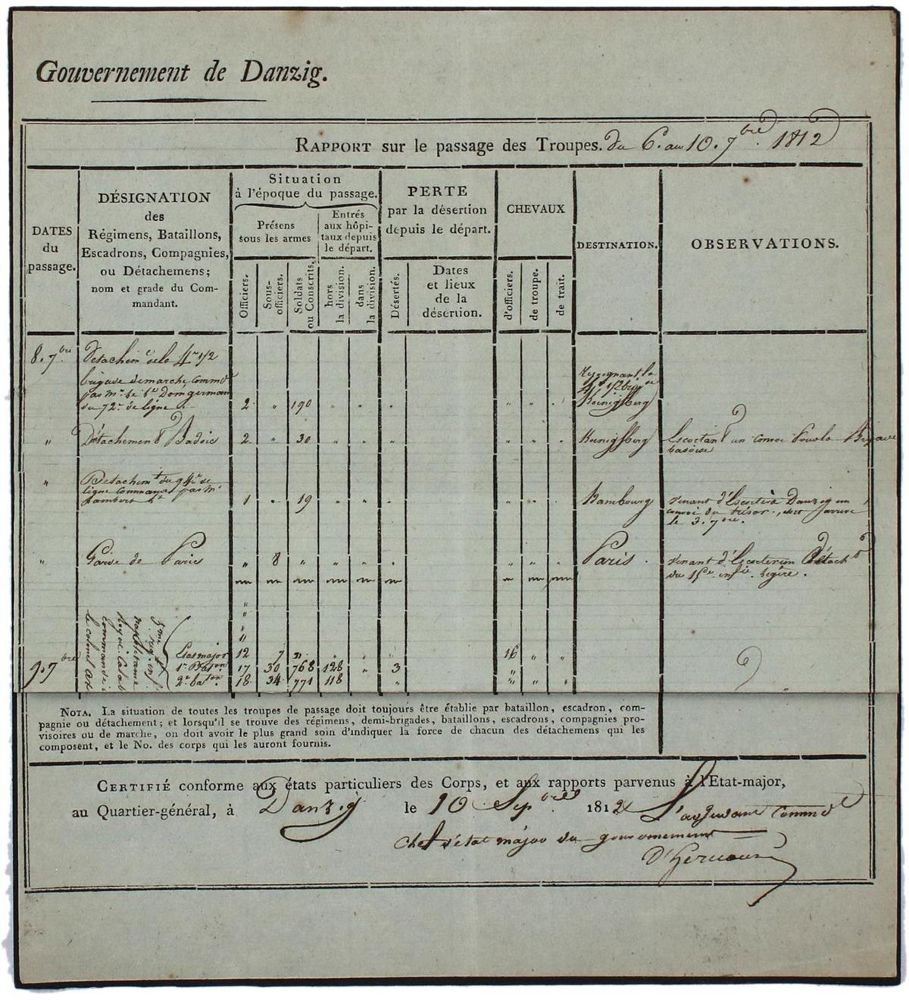 Gouvernement de Danzig.
RAPPORT sur le passage des Troupes. du 6. au 10. 7bre. 1812
DATES
du
passage.
DÉSIGNATION
des
Régimens, Bataillons,
Escadrons, Compagnies,
ou Détachemens;
nom et grade du Com-
mandant.
Situation
à l'époque du passage.
Présens
sous les armes
Entrés
aux hôpi-
taux depuis
le départ.
Officiers.
Sous-
officiers.
Soldats
ou Conscrits.
hors
la division.
dans
la division.
PERTE
par la désertion
depuis le départ.
Désertés.
Dates
et lieux
de la
désertion.
CHEVAUX
d'officiers.
de troupe.
de trait.
DESTINATION.
OBSERVATIONS.
8. 7bre
de la 4me 1/2
brigade de marche
par Mr. le Domgermain
du 72e de ligne
2 " 190 " " " " " "
Koenigsberg
" Détachement Badois 2 " 30 " " " " " " escortant un convoi
" du
ligne commandé par Mr
Lambert
1 " 19 " " " " " "
venant d'escorter à Danzig un
convoi du trésor, arrivé
le 3. 7bre.
" Garde de Paris " 8 " " " " " " " Paris. venant d'escorter un
du 15e infie. légère.
9. 7bre
Etat major 12 7 16 " "
1r Baton 17 30 768 128 " 3 " " "
2e baton 18 34 771 118 " " " " "
NOTA. La situation de toutes les troupes de passage doit toujours être établie par bataillon, escadron, com-
pagnie ou détachement; et lorsqu'il se trouve des régimens, demi-brigades, bataillons, escadrons, compagnies pro-
visoires ou de marche, on doit avoir le plus grand soin d'indiquer la force de chacun des détachemens qui les
composent, et le No. des corps qui les auront fournis.
CERTIFIÉ conforme aux états particuliers des Corps, et aux rapports parvenus à l'Etat-major,
au Quartier-général, à Danzig le 10 Sepbre 1812 L'adjudant Commdt
Chef d'état major du gouvernement